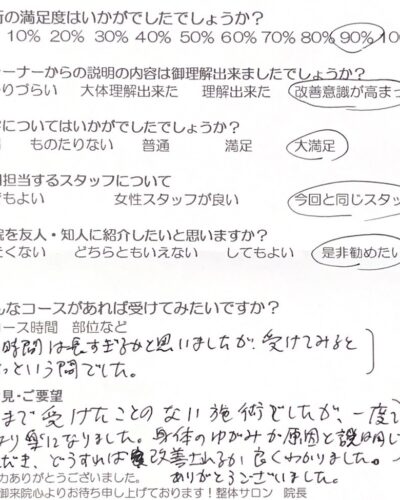 術の満足度はいかがでしたでしょうか？
10% 20% 30% 40% 50% 60% 70% 80% 90% 10
ーナーからの説明の内容は御理解出来ましたでしょうか？
りづらい 大体理解出来た 理解出来た 改善意識が高まっ
についてはいかがでしたでしょうか？
ものたりない 普通 満足 大満足
担当するスタッフについて
でもよい 女性スタッフが良い 今回と同じスタッ
院を友人・知人に紹介したいと思いますか？
たくない どちらともいえない してもよい 是非勧めたい
んなコースがあれば受けてみたいですか？
コース時間 部位など
時間は長すぎるかと思いましたが、受けてみると
っという間でした。
見・ご要望
まで受けたことのない施術でしたが、一度で
り楽になりました。身体のゆがみが原因と説明し
だき、どうすれば改善されるか良くわかりました。
力ありがとうございました。 ありがとうございました。
御来院心よりお待ち申し上げております！整体サロン 院長